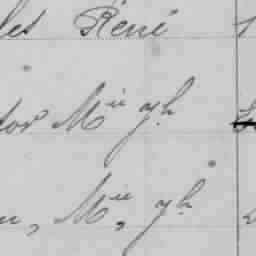 les René
dor Mie Jh
n, Mie, Jh